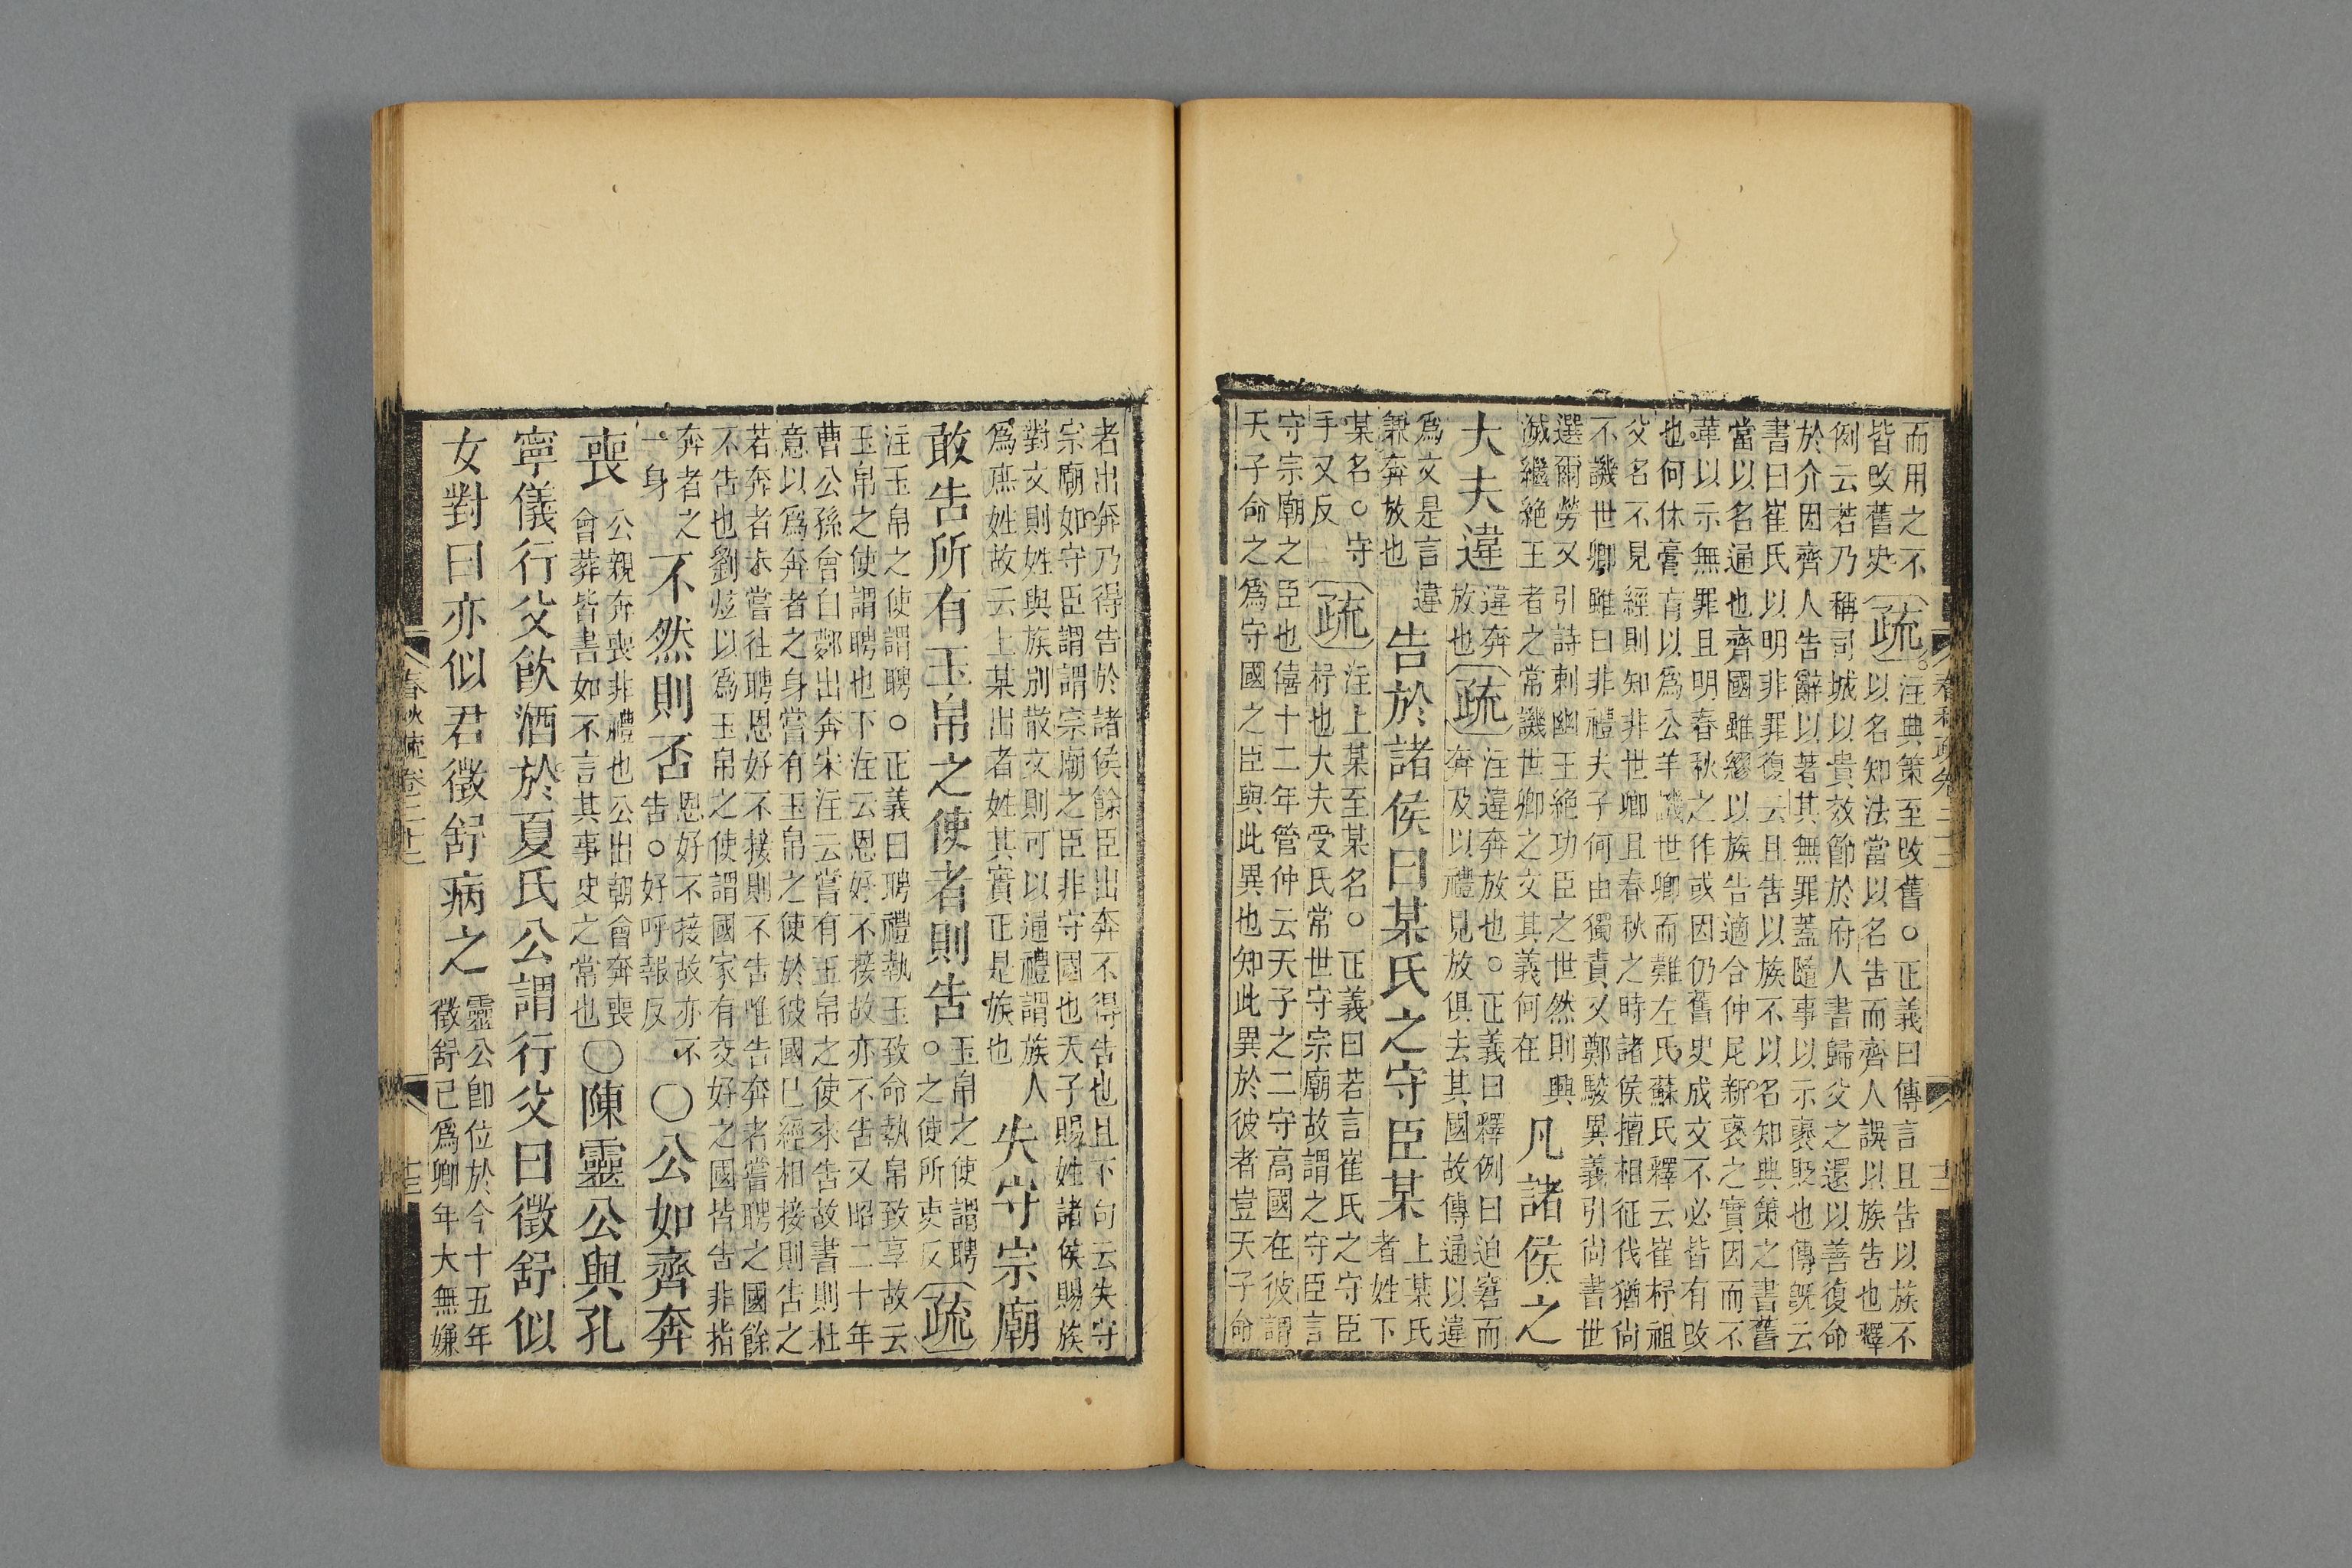 而用之不疏注典策至攺舊○正義曰傳言且告以族不
皆攺舊史以名知法當以名告而齊人誤以族告也釋
例云若乃稱司城以貴效節於府人書歸父之還以善復命
於介因齊人告辭以著其無罪蓋隨事以示褒貶也傳旣云
書曰崔氏以明非罪復云且告以族不以名知典策之書舊
當以名通也齊國雖繆以族告適合仲尼新褒之實因而不
革以示無罪且明春秋之作或因仍舊史成文不必皆有攺
也何休膏肓以爲公羊譏世卿而難左氏蘇氏釋云崔杼祖
父名不見經則知非世卿且春秋之時諸侯擅相征伐猶尙
不譏世卿雖曰非禮夫子何由獨責又鄭駁異義引尙書世
選爾勞又引詩刺幽王絶功臣之世然則興
滅繼絶王者之常譏世卿之文其義何在
凡諸侯之
大夫違
違奔
放也
疏
注違奔放也○正義曰釋例曰迫窘而
奔及以禮見放俱去其國故傳通以違
爲文是言違
兼奔放也
告於諸侯曰某氏之守臣某
上某氏
者姓下
某名○守
手又反
疏
注上某至某名○正義曰若言崔氏之守臣
杼也大夫受氏常世守宗廟故謂之守臣言
守宗廟之臣也僖十二年管仲云天子之二守高國在彼謂
天子命之爲守國之臣與此異也知此異於彼者豈天子命
者出奔乃得告於諸侯餘臣出奔不得告也且下句云失守
宗廟如守臣謂謂宗廟之臣非守國也天子賜姓諸侯賜族
對文則姓與族別散文則可以通禮謂族人
爲庶姓故云上某出者姓其實正是族也
失守宗廟
敢告所有玉帛之使者則告
○玉帛之使謂聘
之使所吏反
疏
注玉帛之使謂聘○正義曰聘禮執玉致命執帛致享故云
玉帛之使謂聘也下注云恩好不接故亦不告又昭二十年
曹公孫會自鄸出奔宋注云嘗有玉帛之使來告故書則杜
意以爲奔者之身嘗有玉帛之使於彼國已經相接則告之
若奔者未嘗往聘恩好不接則不告唯告奔者嘗聘之國餘
不告也劉炫以爲玉帛之使謂國家有交好之國皆告非指
奔者之
一身
不然則否
恩好不接故亦不
告○好呼報反
○公如齊奔
喪
公親奔喪非禮也公出朝會奔喪
會葬皆書如不言其事史之常也
○陳靈公與孔
寧儀行父飮酒於夏氏公謂行父曰徵舒似
女對曰亦似君徵舒病之
靈公卽位於今十五年
徵舒已爲卿年大無嫌
春秋疏卷二十二
十三